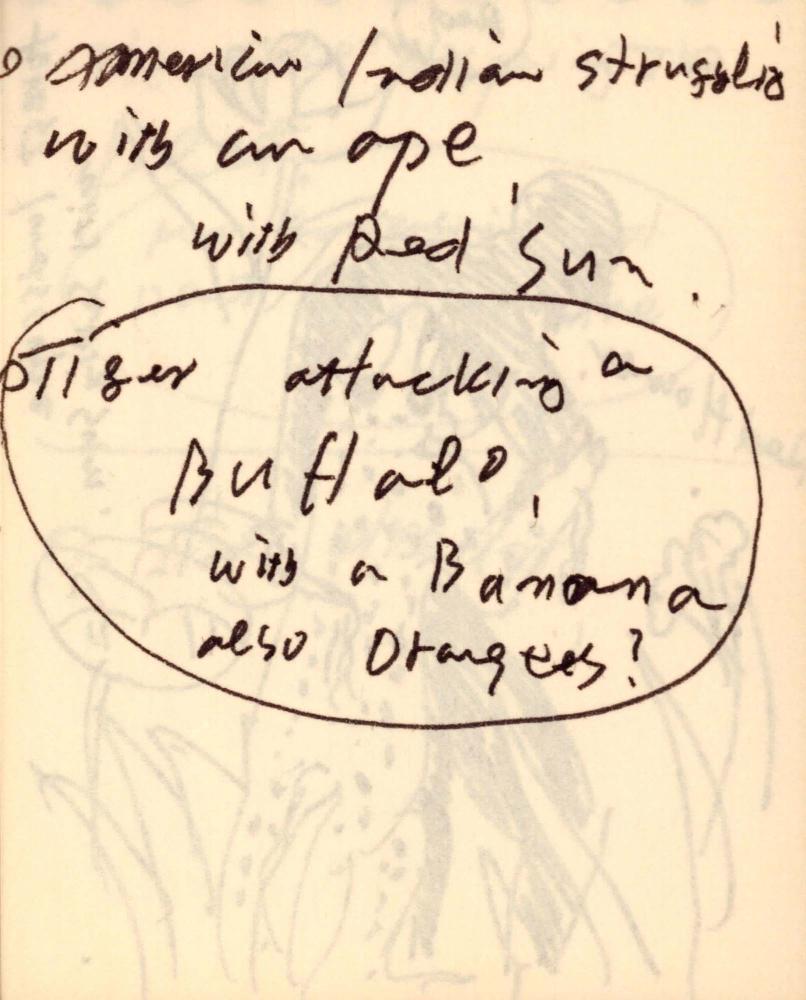 o American Indian struggling
with an ape,
with Red Sun.
o Tiger attacking a
Buffalo,
with a Banana
also Orangees?